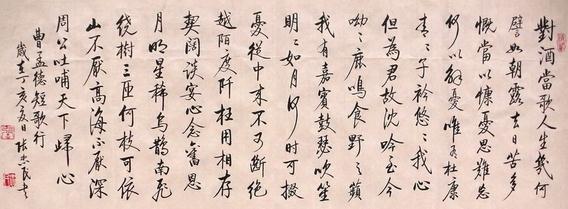 對酒當歌人生幾何
譬如朝露去日苦多
慨當以慷憂思難忘
何以解憂唯有杜康
青々子衿悠々我心
但為君故沈吟至今
呦々鹿鳴食野之蘋
我有嘉賓鼓瑟吹笙
明々如月何時可掇
憂從中來不可斷絕
越陌度阡枉用相存
契闊談宴心念舊恩
月明星稀烏鵲南飛
繞樹三匝何枝可依
山不厭高海不厭深
周公吐哺天下歸心
曹孟德短歌行
歲在丁亥夏日